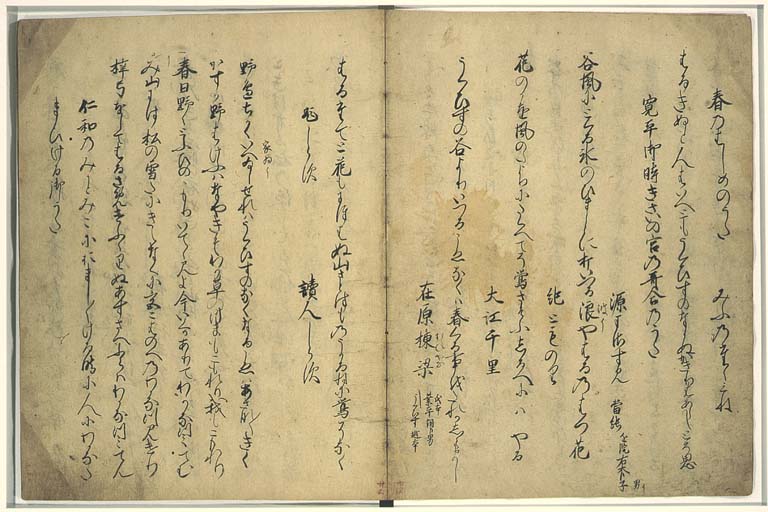 春乃はしめのうた　みふ乃たゝみね
はるきぬと人はいへともうくひすのなかぬかきりはあらしとそ思
寛平御時きさいの宮乃哥合乃うた
源まさすみ 當純
谷風にとくる氷のひまことに打いつる浪やはる乃はつ花
紀とものり
花のかを風のたよりにたくへてそ鶯さそふしるへにはやる
大江千里
うくひすの谷よりいつるこゑなくは春くる事をたれかしらまし
在原棟梁
はるたてと花もにほはぬ山さとはものうかるねに鶯そなく
題しらす　讀人しらす
野邊ちかくいへゐしせれはうくひすのなくなるこゑはあさな〱きく
かすか野はけふはなやきそわか草のつまもこもれり我もこもれり
春日野のとふひのゝもりいてゝ見よ今いくかありてわかなつみてむ
み山には松の雪たにきえなくに宮こはのへのわかなつみけり
梓弓をしてはるさめけふふりぬあすさへふらはわかなつみてん
仁和乃みかとみこにおまし〱ける時に人にわかな
たまひける御うた